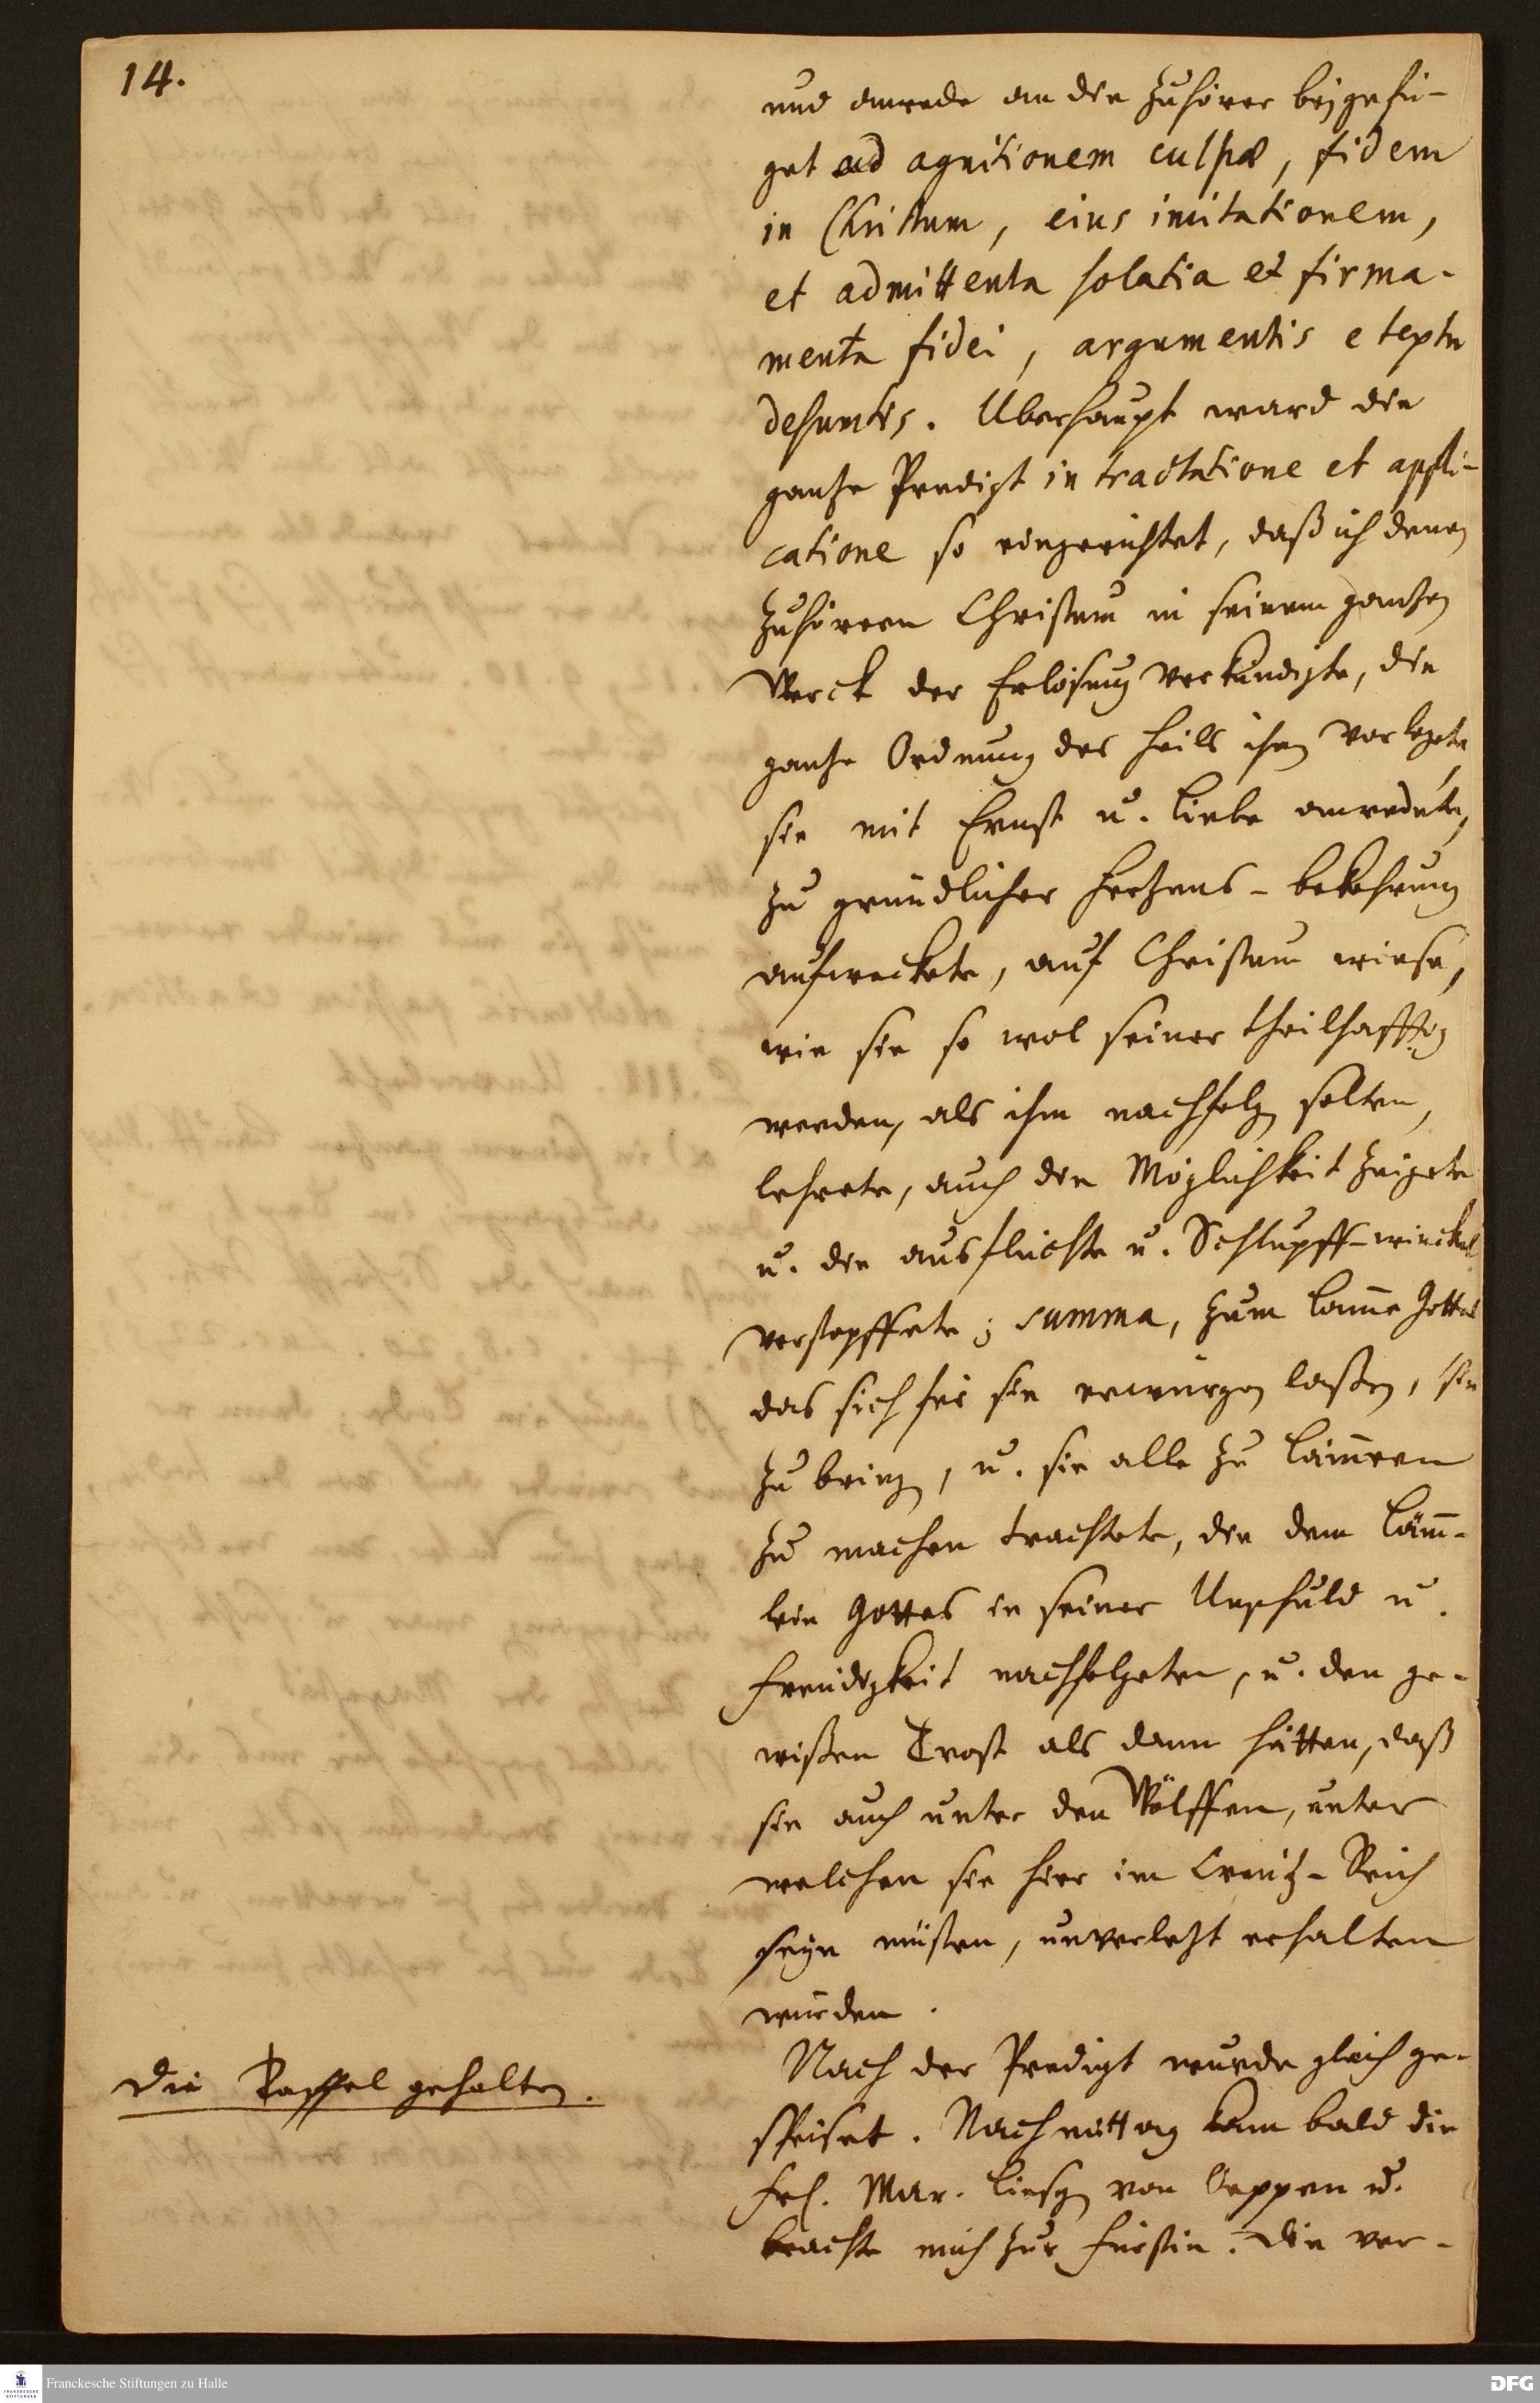 14.
und anrede an die Zuhörer beygefü-
get ad agnitionem culpæ, fidem
in Christum, eius imitationem,
et admittenta solatia et firma-
menta fidei, argumentis e textu
desumtis. Uberhaupt ward die
gantze Predigt in tractatione et appli-
catione so eingerichtet, daß ich denen
Zuhörern Christum in seinem gantzen
Werck der Erlösung verkündigte, die
gantze Ordnung des Heils ihnen vorlegete,
sie mit Ernst u. Liebe anredete,
zu gründlicher Hertzens-bekehrung
aufweckete, auf Christum wiese,
wie sie so wol seiner theilhafftig
werden, als ihm nachfolgen solten,
lehrete, auch die Möglichkeit zeigete
u. die ausflüchte u. Schlupff-winckel
verstopffete; summa, zum Lamme Gottes
das sich für sie erwürgen laßen, sie
zu bringen, u. sie alle zu Lämmern
zu machen trachtete, die dem Lämm-
lein Gottes in seiner Unschuld u.
Freudigkeit nachfolgeten, u. den ge-
wißen Trost als dann hätten, daß
sie auch unter den Wölffen, unter
welchen sie hier im Creutz-Reich
seyn müsten, unverletzt erhalten
würden.
Nach der Predigt wurde gleich ge-
speiset. Nachmittag kam bald die
Frl. Mar. Liesgen von Oeppen u.
brachte mich zur Fürstin. Die ver-
die Taffel gehalten.
Franckesche Stiftungen zu Halle
FRANCKESCHE STIFTUNGEN
DFG